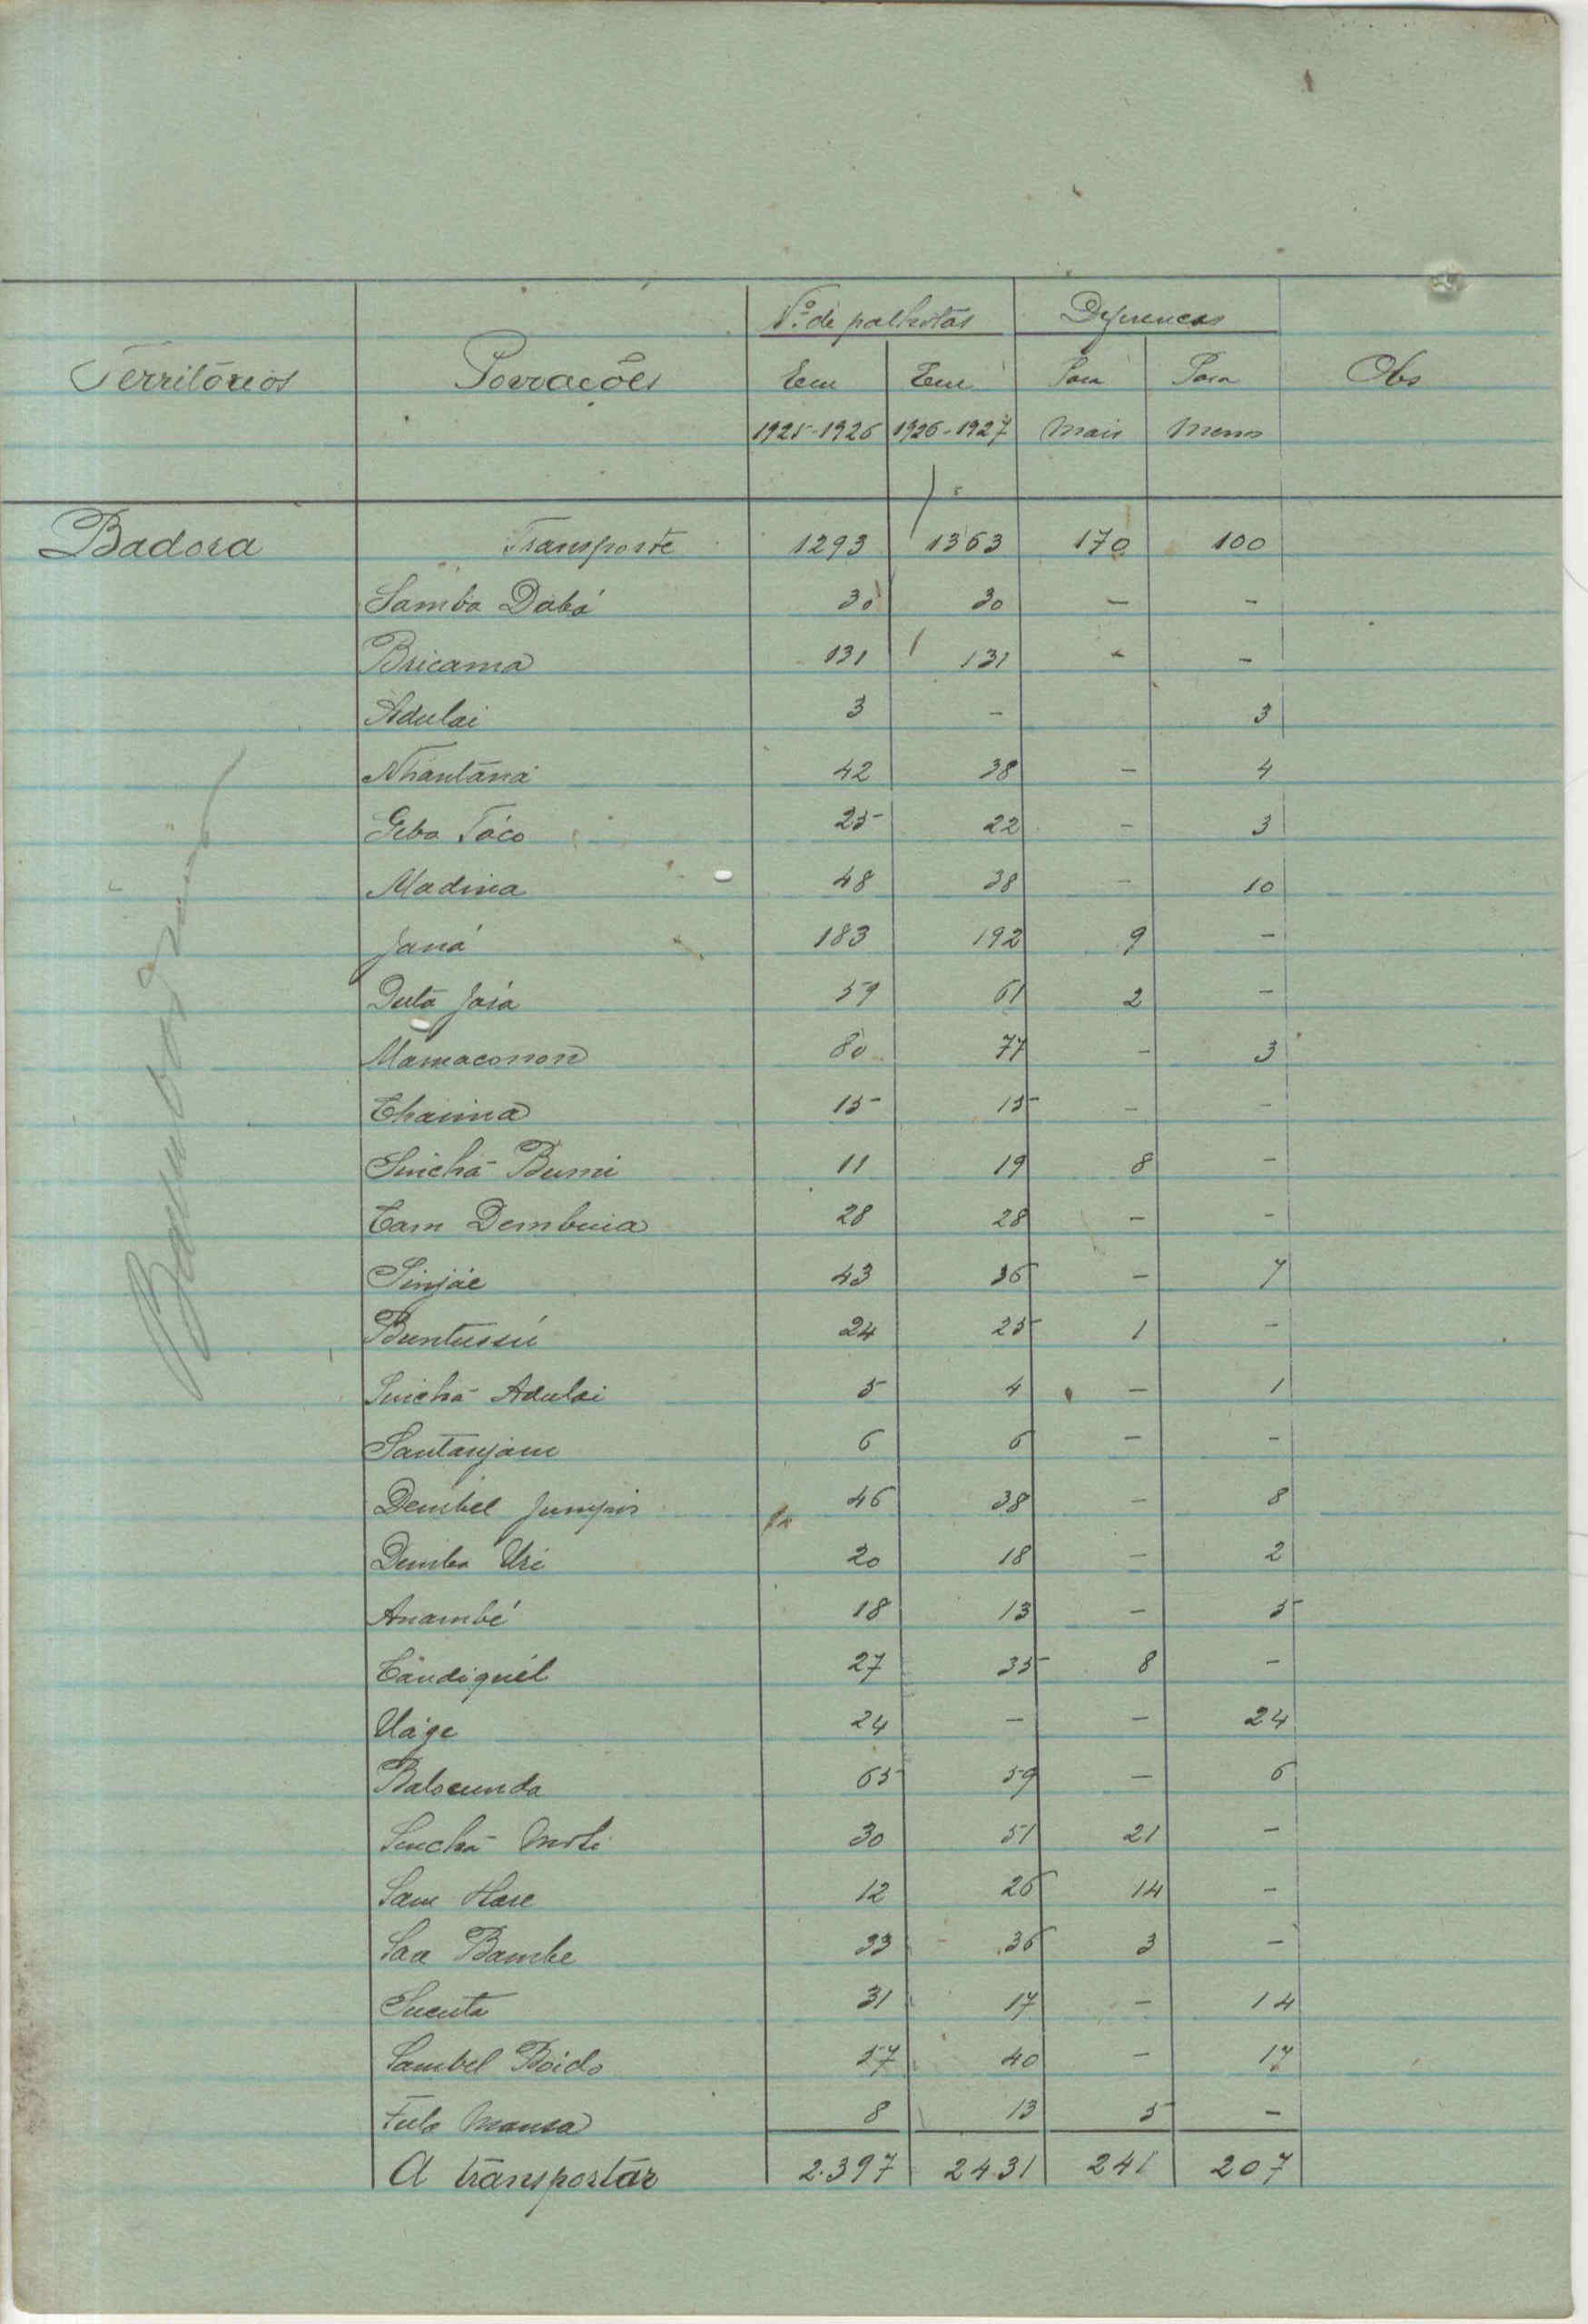 Nº de palhotas Diferenças
Territórios Povoações Em Em Para Para Obs
1925-1926 1926-1927 Mais Menos
Badora Transporte 1293 1363 170 100
Samba Dabá 30 30 - -
Bricama 131 131 - -
Adulai 3 - 3
Nhantãná 42 38 - 4
Geba Tóco 25 22 - 3
Madina 48 38 - 10
Janá 183 192 9 -
Dutã Jaiá 59 61 2 -
Mamaconon 80 77 - 3
Chaima 15 15 - -
Sinchã Bumi 11 19 8 -
Cam Dembuia 28 28 - -
Sinjáe 43 36 - 7
Buntussú 24 25 1 -
Sinchã Adulai 5 4 - 1
Santanjam 6 6 - -
Dembel 46 38 - 8
Demba Uri 20 18 - 2
Anambé 18 13 - 5
Candiguél 27 35 8 -
Uáge 24 - - 24
Balocunda 65 59 - 6
Sinchã Moli 30 51 21 -
Sam 12 26 14 -
Saa Bambe 33 36 3 -
Sucuta 31 17 - 14
Sambel Boido 57 40 - 17
Fulo Mansa 8 13 5 -
A transportar 2.397 2431 241 207